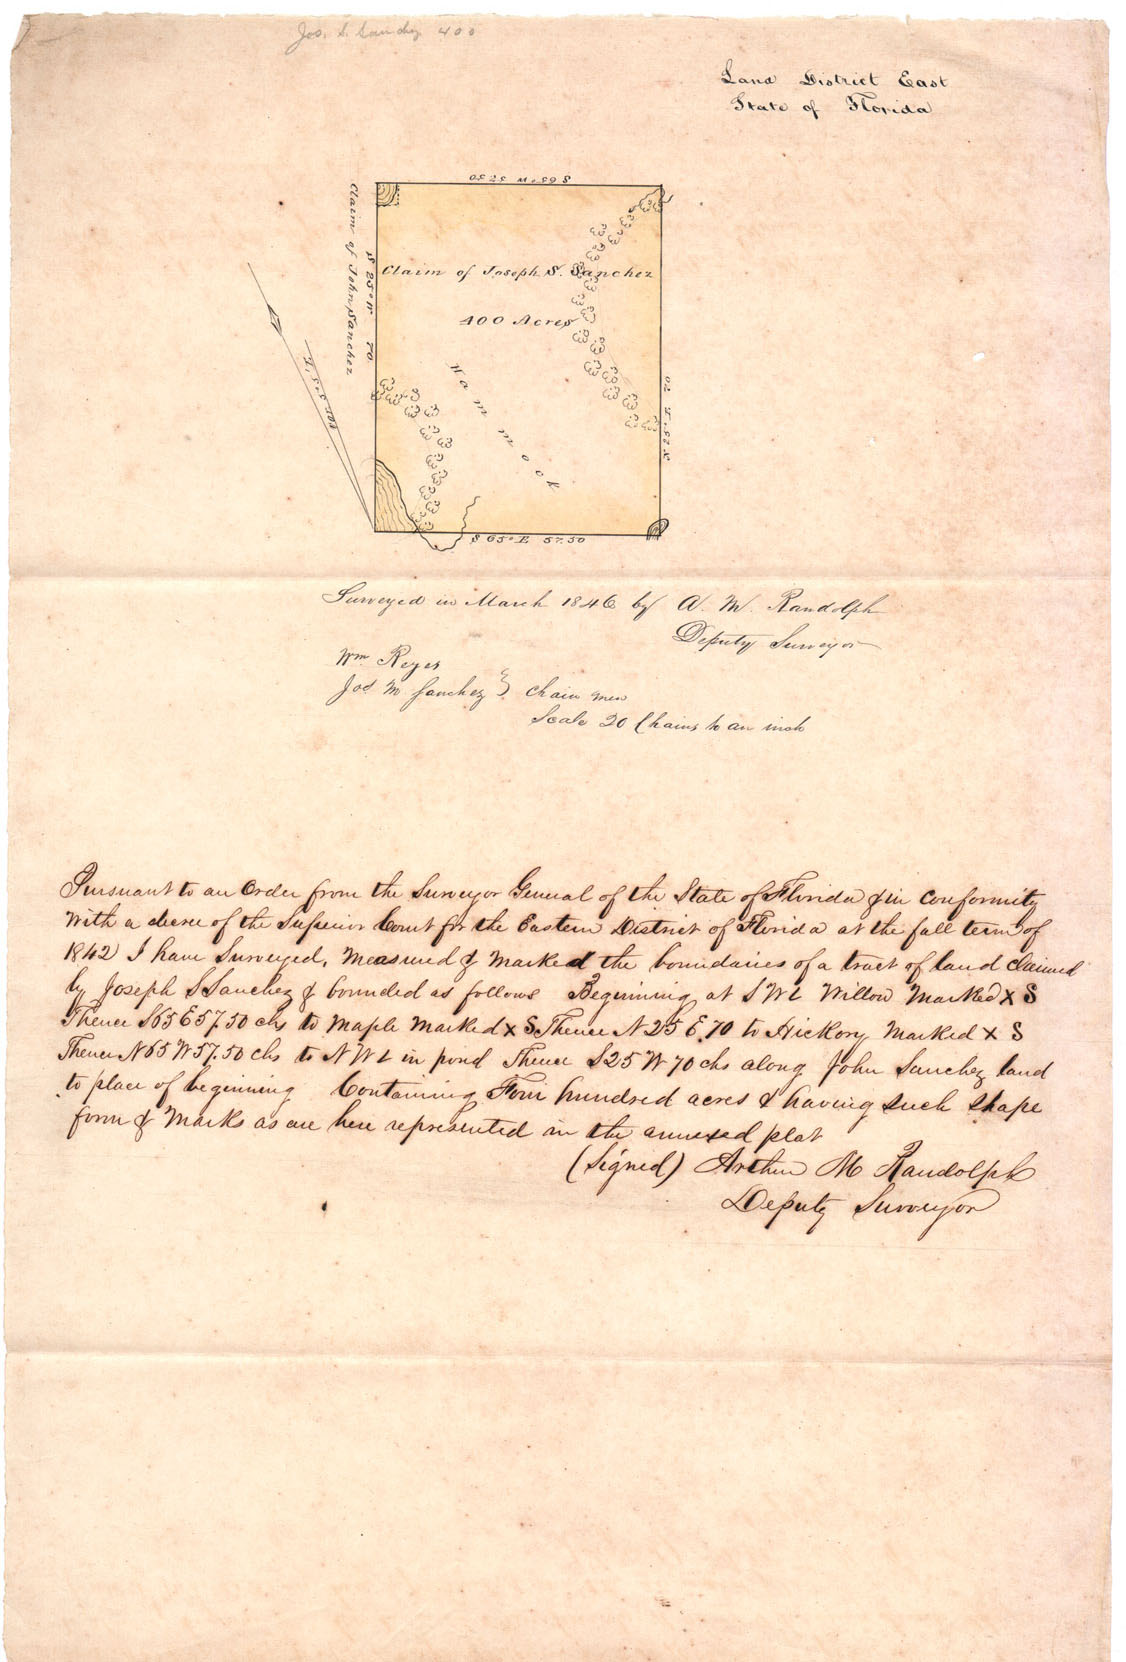 Jos. S. Sanchez 400
Land District East
State of Florida
S 65° W 57.50
Claim of John Sanchez
S 25° W 70
Claim of Joseph S. Sanchez
400 Acres
Hammock
N. 25° E. 70
Var. 5°
S 65° E 57.50
Surveyed in March 1846 by A. M. Randolph
Deputy Surveyor
Wm Reyes
Jos M Sanchez } Chain men
Scale 20 Chains to an inch
Pursuant to an Order from the Surveyor General of the State of Florida & in conformity
with a decree of the Superior Court for the Eastern District of Florida at the fall term of
1842 I have Surveyed, measured & marked the boundaries of a tract of land claimed
by Joseph S Sanchez & bounded as follows Beginning at S W L Willow marked X S
Thence S65 E 57.50 chs to maple marked X S. Thence N 25 E. 70 to Hickory marked X S
Thence N65 W 57.50 chs to N W L in pond Thence S25 W 70 chs along John Sanchez land
to place of beginning Containing Four hundred acres & having such shape
form & Marks as are here represented in the annexed plat
(Signed) Arthur M Randolph
Deputy Surveyor